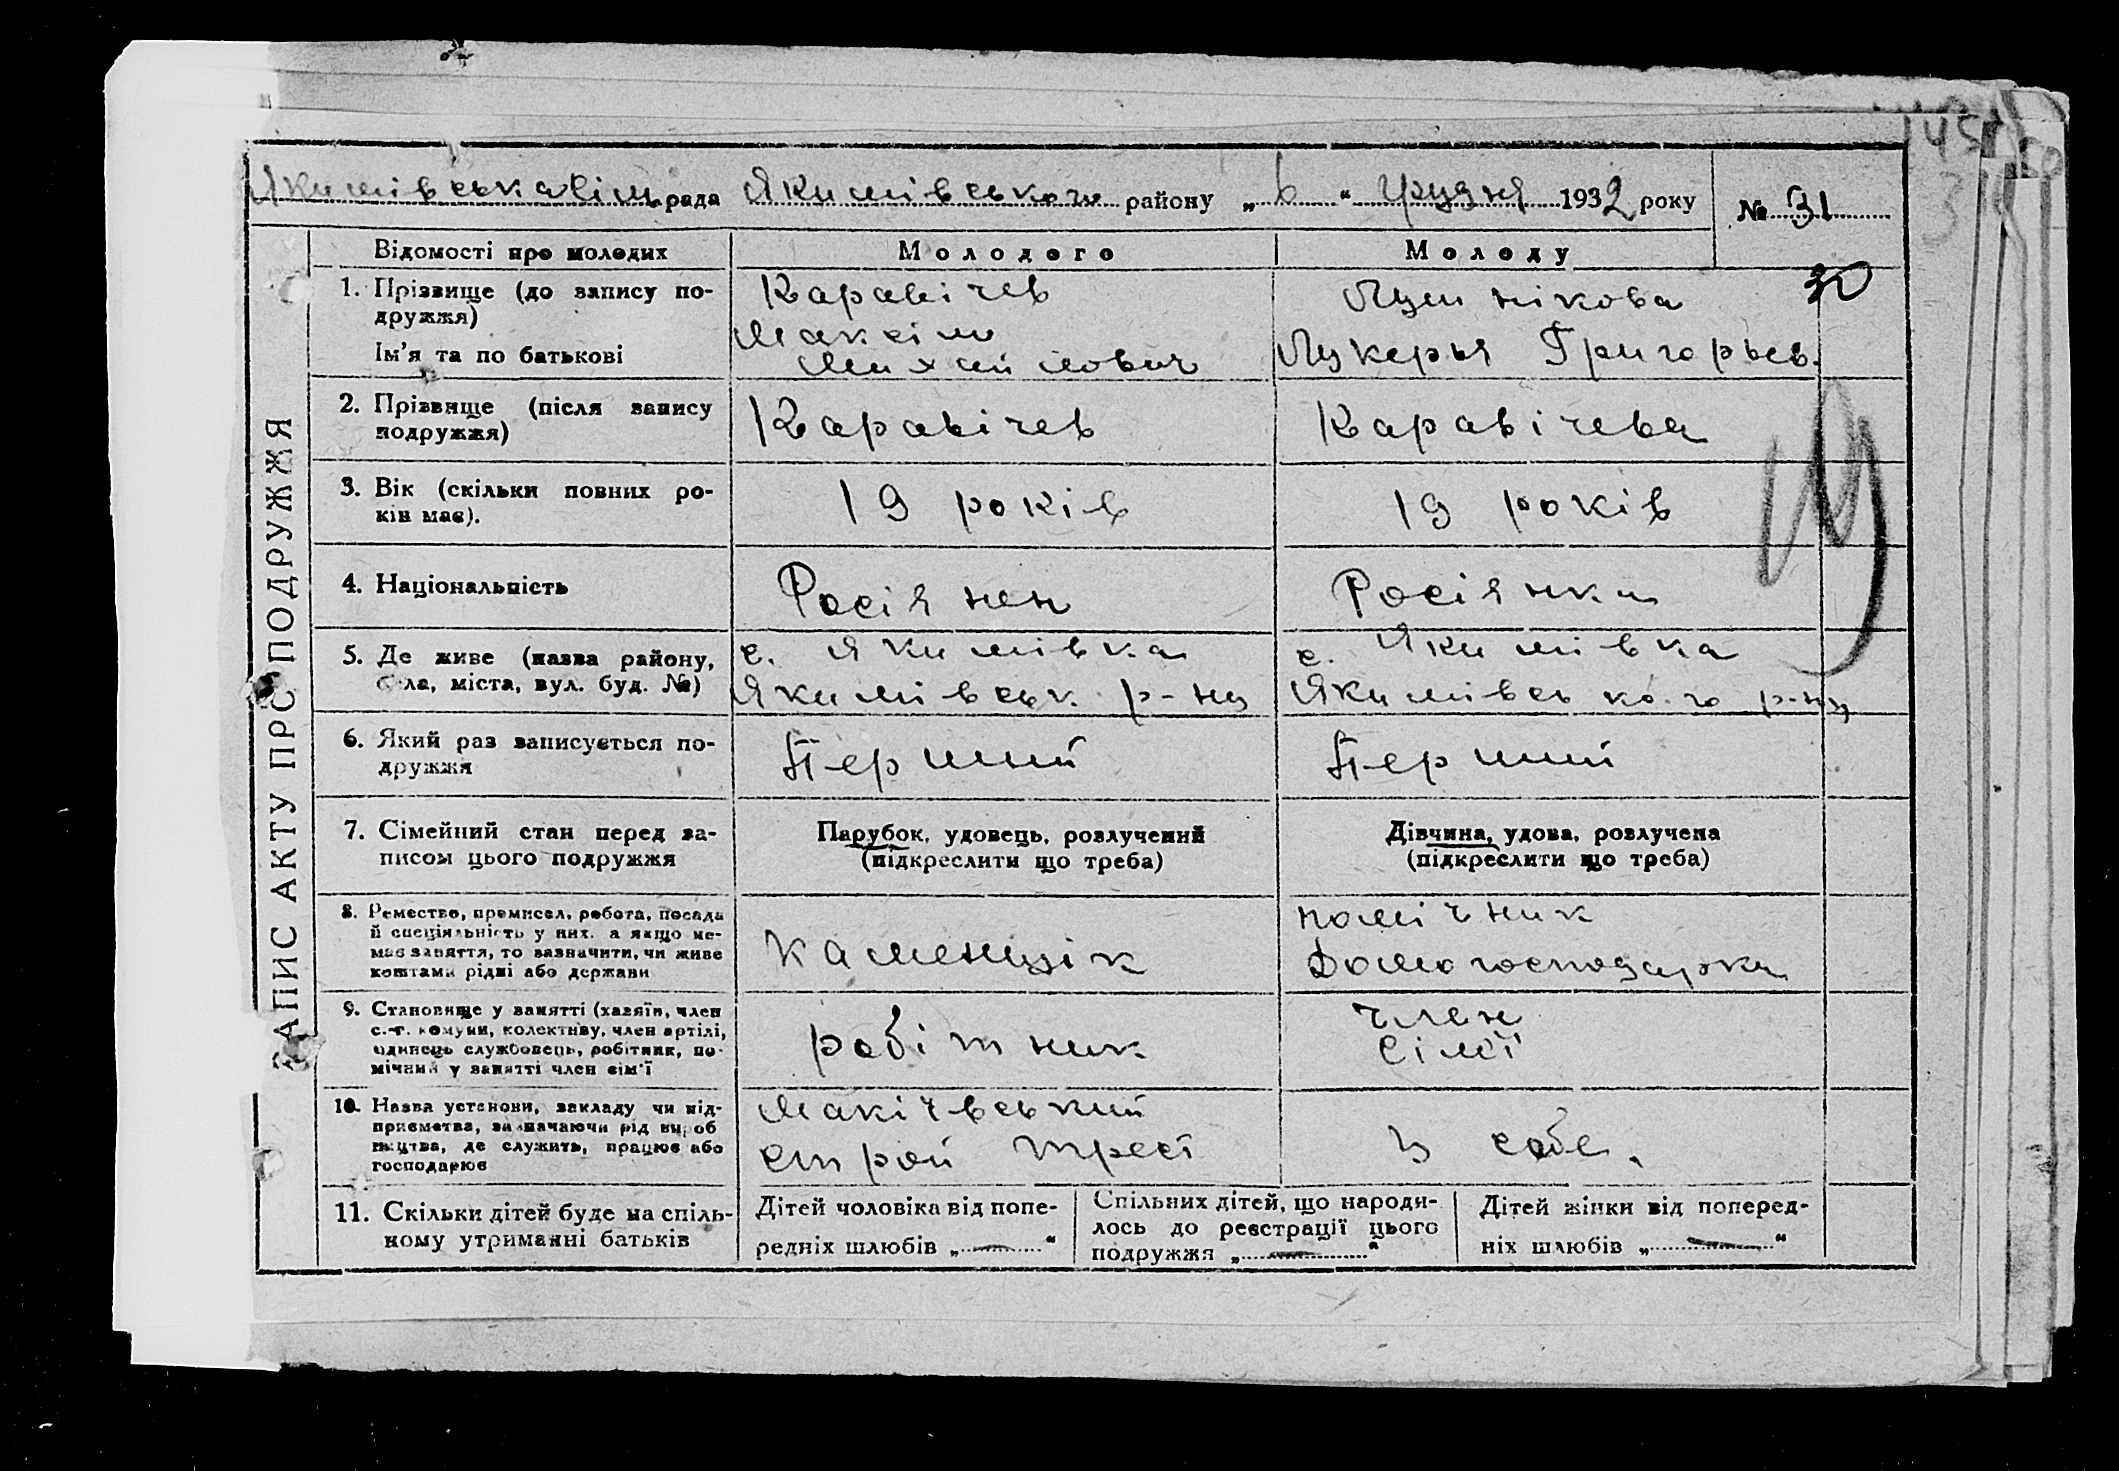 Якимівська сіль. рада Якимівського району „ 6 “ Грудня 1932 року № 31
Відомості про молодих Молодого Молоду
30
1. Прізвище (до запису по-
дружжя)
Ім'я та по батькові
Каравічев
Максім
Михайлович
Лушнікова
Лукерья Григорьев.
2. Прізвище (після запису
подружжя)
Каравічев
Каравічева
3. Вік (скільки повних ро-
ків має).
19 років
19 років
4. Національність
Росіянен
Росіянка
5. Де живе (назва району,
села, міста, вул. буд. №)
с. Якимівка
Якимівськ. р-ну
с. Якимівка
Якимівсько.го р-ну
6. Який раз записується по-
дружжя
Перший
Перший
7. Сімейний стан перед за-
писом цього подружжя
Парубок, удовець, розлучений
(підкреслити що треба)
Дівчина, удова, розлучена
(підкреслити що треба)
8. Ремество, промисел, робота, посада
й спеціяльність у них, а якщо не-
має заняття, то зазначити, чи живе
коштами рідні або держави
каменщік
помічник
домогосподарка
9. Становище у занятті (хазяїн, член
с.-г. комуни, колективу, член артілі,
одинець службовець, робітник, по-
мічний у занятті член сім'ї
робітник
член
сімії
10. Назва установи, закладу чи під-
приємства, зазначаючи рід вироб
ництва, де служить, працює або
господарює
Макіївський
строй трест
у себе.
11. Скільки дітей буде на спіль-
ному утриманні батьків
Дітей чоловіка від попе-
редніх шлюбів „ — “
Спільних дітей, що народи-
лось до реєстрації цього
подружжя „ — “
Дітей жінки від поперед-
ніх шлюбів „ — “
ЗАПИС АКТУ ПРО ПОДРУЖЖЯ